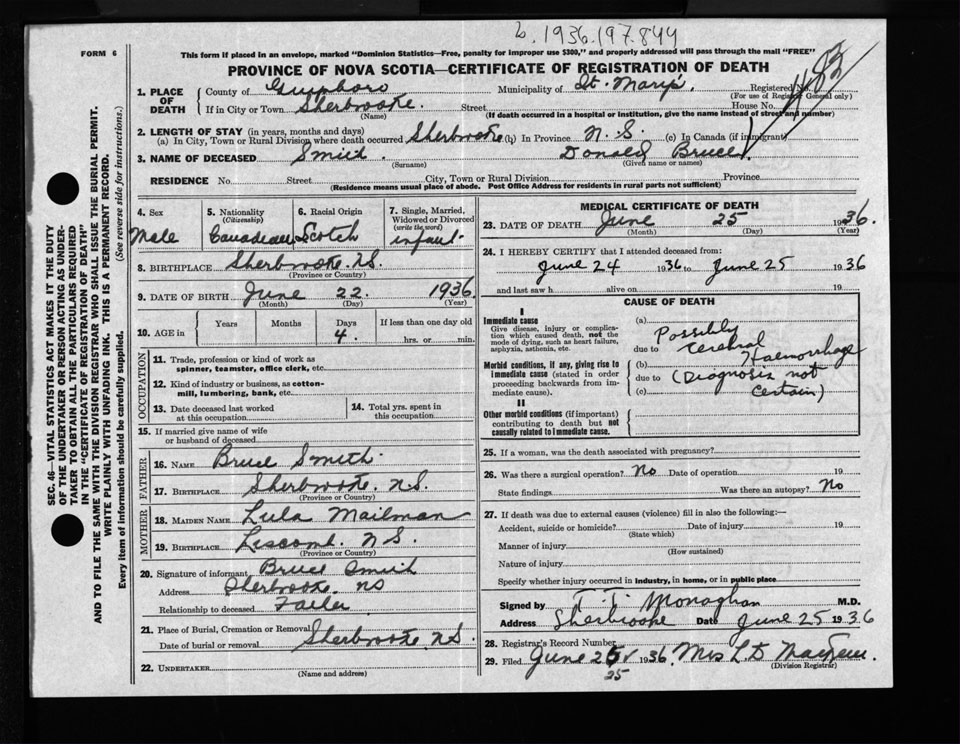 b. 1936.197.844
FORM 6
This form if placed in an envelope, marked "Dominion Statistics—Free, penalty for improper use $300," and properly addressed will pass through the mail "FREE"
PROVINCE OF NOVA SCOTIA—CERTIFICATE OF REGISTRATION OF DEATH
1. PLACE OF DEATH
County of Guysboro Municipality of St. Mary's. Registered No.
(For use of Registrar General only)
If in City or Town Sherbrooke. Street House No.
(Name) (If death occurred in a hospital or institution, give the name instead of street and number)
2. LENGTH OF STAY (in years, months and days)
(a) In City, Town or Rural Division where death occurred Sherbrooke (b) In Province N.S. (c) In Canada (if immigrant)
3. NAME OF DECEASED Smith. Donald Bruce
(Surname) (Given name or names)
RESIDENCE No. Street City, Town or Rural Division Province
(Residence means usual place of abode. Post Office Address for residents in rural parts not sufficient)
4. Sex
Male
5. Nationality
(Citizenship)
Canadian
6. Racial Origin
Scotch
7. Single, Married, Widowed or Divorced
(write the word)
infant
8. BIRTHPLACE Sherbrooke. N.S.
(Province or Country)
9. DATE OF BIRTH June 22. 1936
(Month) (Day) (Year)
10. AGE in
Years Months Days If less than one day old
4. hrs. or min.
OCCUPATION
11. Trade, profession or kind of work as
spinner, teamster, office clerk, etc.
12. Kind of industry or business, as cotton-
mill, lumbering, bank, etc.
13. Date deceased last worked
at this occupation
14. Total yrs. spent in
this occupation
15. If married give name of wife
or husband of deceased
FATHER
16. NAME Bruce Smith.
17. BIRTHPLACE Sherbrooke. N.S.
(Province or Country)
MOTHER
18. MAIDEN NAME Lula Mailman
19. BIRTHPLACE Liscomb. N S.
(Province or Country)
20. Signature of informant Bruce Smith
Address Sherbrooke. NS
Relationship to deceased Father
21. Place of Burial, Cremation or Removal Sherbrooke N.S.
Date of burial or removal
22. UNDERTAKER
(Name and address)
MEDICAL CERTIFICATE OF DEATH
23. DATE OF DEATH June 25 1936.
(Month) (Day) (Year)
24. I HEREBY CERTIFY that I attended deceased from:
June 24 1936 to June 25 1936
and last saw h alive on 19
CAUSE OF DEATH
I
Immediate cause
Give disease, injury or complica-
tion which caused death, not the
mode of dying, such as heart failure,
asphyxia, asthenia, etc.
Morbid conditions, if any, giving rise to
immediate cause (stated in order
proceeding backwards from im-
mediate cause).
II
Other morbid conditions (if important)
contributing to death but not
causally related to immediate cause.
(a) Possibly
due to Cerebral
(b) Haemorrhage
due to (Diagnosis not
(c) Certain)
25. If a woman, was the death associated with pregnancy?
26. Was there a surgical operation? No Date of operation 19
State findings Was there an autopsy? No
27. If death was due to external causes (violence) fill in also the following:—
Accident, suicide or homicide? Date of injury 19
(State which)
Manner of injury
(How sustained)
Nature of injury
Specify whether injury occurred in industry, in home, or in public place
Signed by T. T. Monaghan M.D.
Address Sherbrooke Date June 25 1936
28. Registrar's Record Number
29. Filed June 25 1936. Mrs L.D
25 (Division Registrar)
SEC. 46—VITAL STATISTICS ACT MAKES IT THE DUTY
OF THE UNDERTAKER OR PERSON ACTING AS UNDER-
TAKER TO OBTAIN ALL THE PARTICULARS REQUIRED
IN THE "CERTIFICATE OF REGISTRATION OF DEATH"
AND TO FILE THE SAME WITH THE DIVISION REGISTRAR WHO SHALL ISSUE THE BURIAL PERMIT.
WRITE PLAINLY WITH UNFADING INK. THIS IS A PERMANENT RECORD.
Every item of information should be carefully supplied. (See reverse side for instructions.)